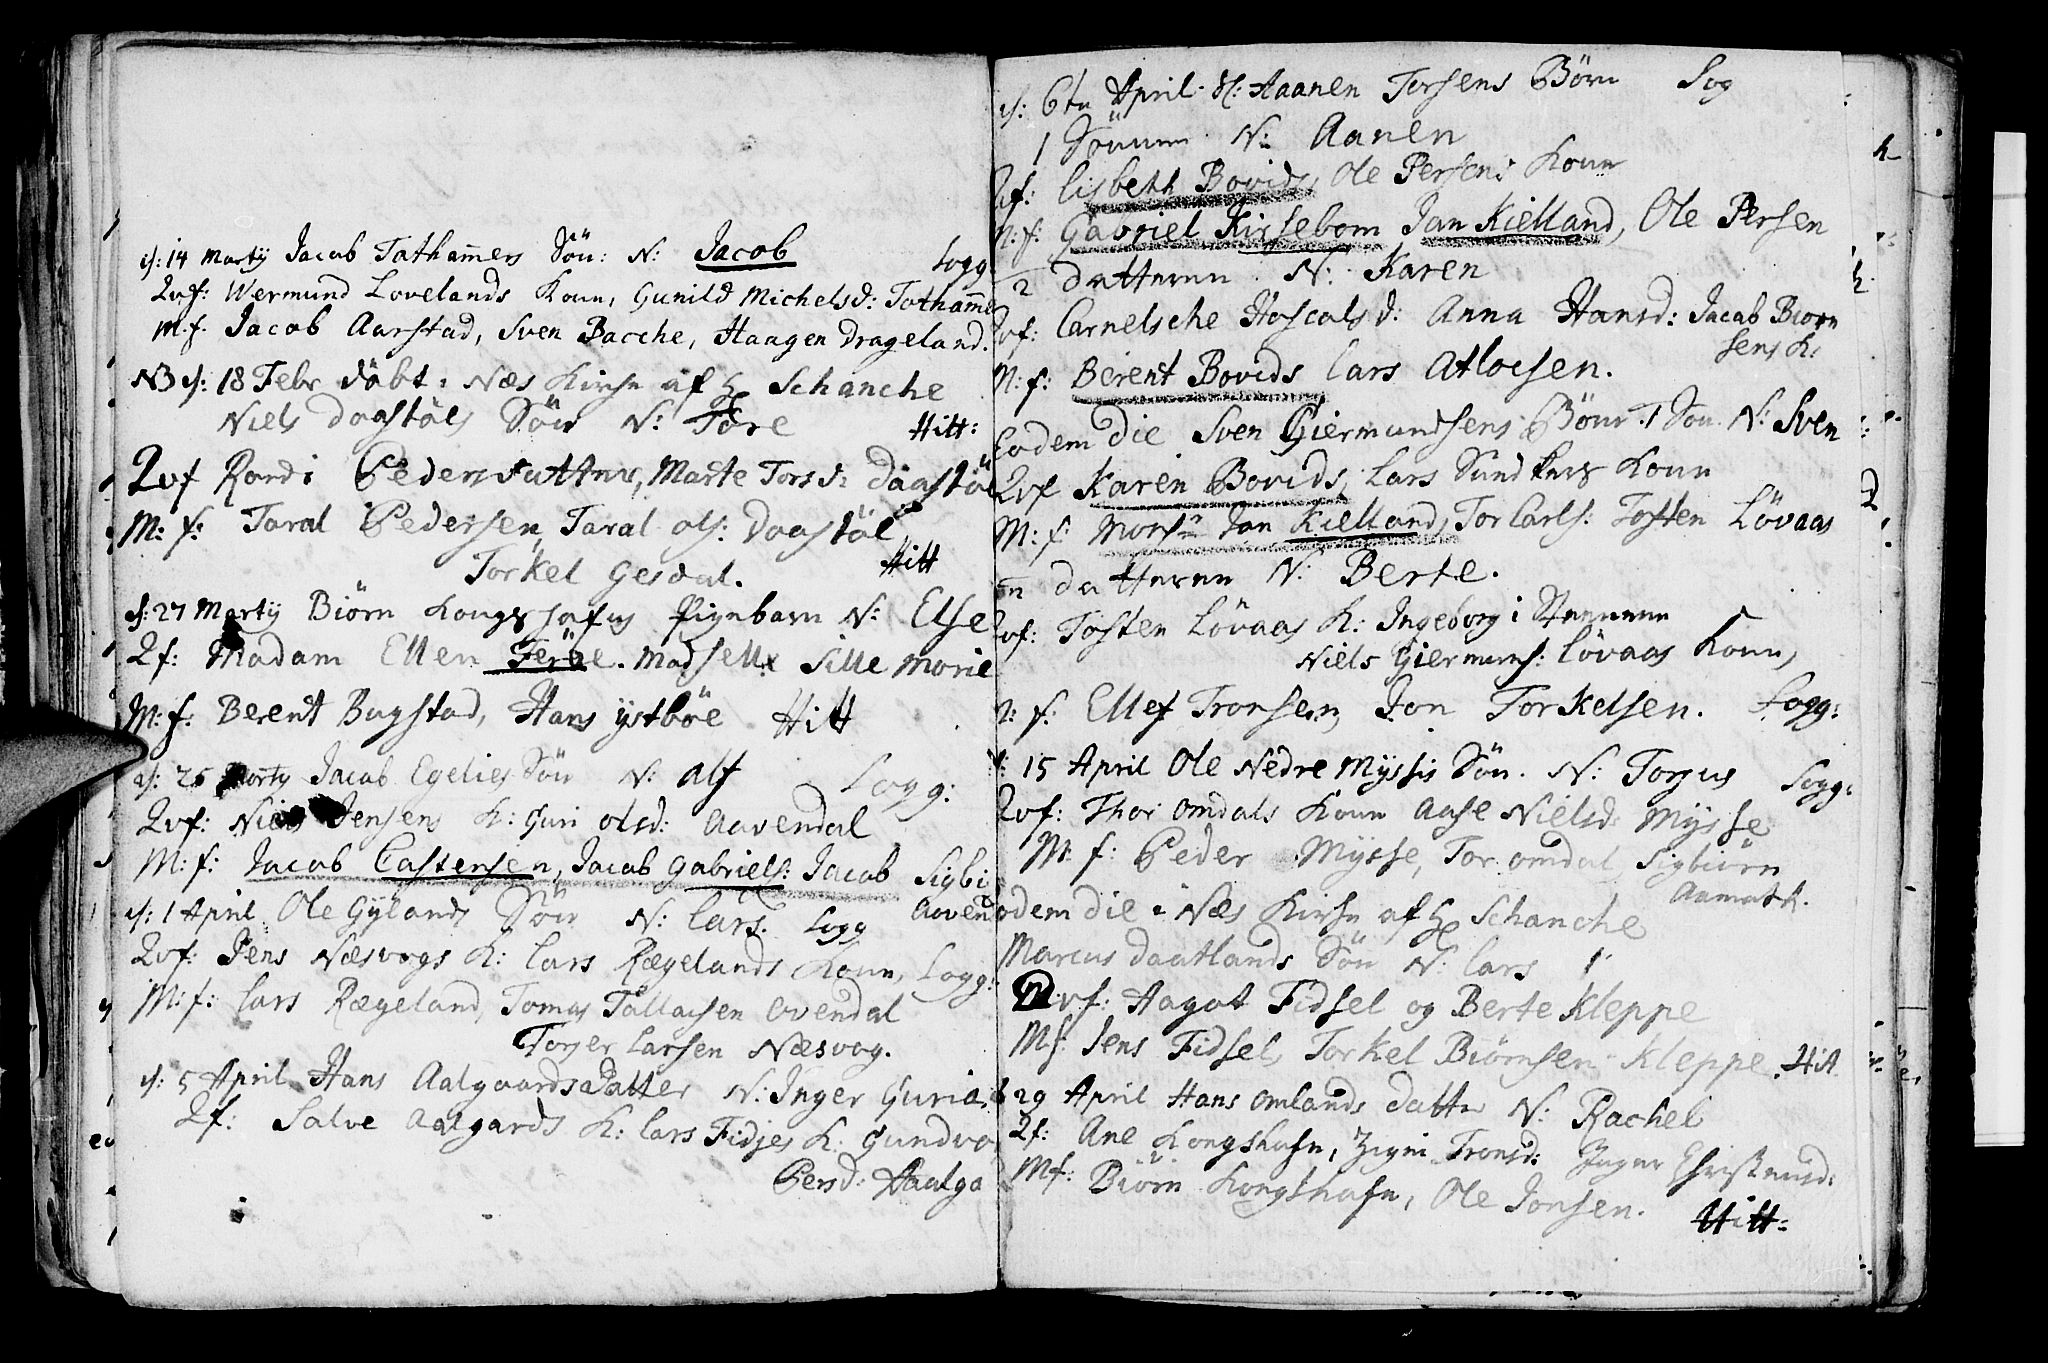 d: 14 Martÿ Jacob Tathamers Sön: N: Jacob Sogg:
Qvf: Wermund Lovelands Kone, Gunild Michelsd: Tothamme
M. f. Jacob Aarstad, Sven Bacche, Haagen Drageland.
NB d: 18 Febr döbt i Næs Kirke af H Schanche
Niels Daastöls Sön N: Tore Hitt:
Qvf Randi Pedersdatter, Marte Torsd: Daastöl
M: f: Taral Pedersen, Taral ols: Daastöl
Torkel Gesdal. Hitt
d: 27 Martÿ Biörn Kongshafns Pigebarn N: Else
Qf: Madam Ellen Feröe. Madselle Sille Marie
M: f: Berent Bugstad, Hans ÿstböe Hitt
d: 25 Martÿ Jacob Egelies Sön N: Alf Sogg:
Qvf: Niels Jensens K: Guri olsd: Aavendal
M: f: Jacob Castensen, Jacob Gabriels: Jacob Sigbi
Aavend
d: 1 April Ole Gÿlands Sön N: Lars. Sogg
Qvf: Jens Næsvogs K: Lars Rægelands Kone, Sogg:
M: f: Lars Rægeland, Tomas Tallachsen Ovendal
Torjer Larsen Næsvog.
d: 5 April Hans Aalgaards Datter N: Inger Guria.
Qf: Salve Aalgards K: Lars Fidjes K: Gundvo
Persd: Aaalga
d: 6te April Haanen Torsens Börn Sog
1 Sönnen N: Aanen
Qf: Lisbeth Bovids, Ole Persens Kone
M: f: Gabriel Kirsebom Jan Kielland, Ole Persen
2 datteren N: Karen
Qvf: Carnelsche Hascalsd: Anna Hansd: Jacob Biorn
sens K:
M: f: Berent Bovids Lars Atlocsen.
Eodem die Sven Giermundsens Börn 1 Sön N: Sven
Qvf Karen Bovids, Lars Kone
M: f: Monsr Jan Kielland, Tor Carls: Tosten Lövaas
datteren N: Berte.
Qvf: Tosten Lövaas K: Ingeborg i
Niels Giermunds: Lövaas Kone,
M: f: Ellef Tronsen, Jon Torkelsen. Sogg:
d: 15 April Ole Nedre Mÿssis Sön. N: Torjus Sogg:
Qvf: Thor omdals Kone Aase Nielsd: Mÿsse
M: f: Peder Mÿsse, Tor omdal, Sigbiörn
Aamodt.
Eodem die i Næs Kirke af H Schanche
Marcus Daatlands Sön N: Lars
Qvf: Aagot Fidsel og Berte Kleppe
Mf: Jens Fidsel, Torkel Biörnsen Kleppe. Hit
d 29 April Hans Omlands datter N: Rachel
Qf: Ane Kongshafn, Zigni Tronsd: Inger Christensd:
Mf: Biörn Kongshafn, Ole Jonsen. Hitt: